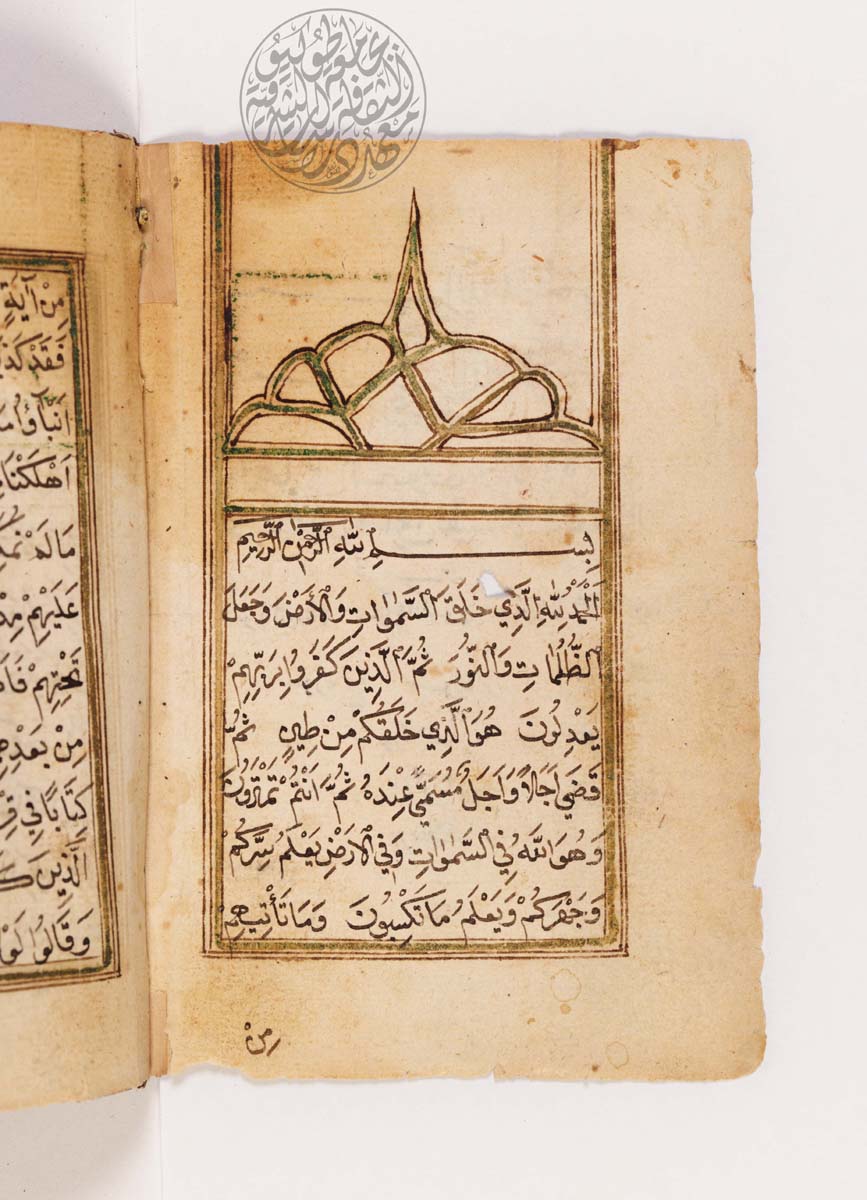 بسم الله الرحمن الرحيم
اَلْحَمْدُ لِلّٰهِ الَّذِي خَلَقَ السَّمٰوَاتِ وَالْاَرْضَ وَجَعَلَ
الظُّلُمَاتِ وَالنُّورَ ثُمَّ الَّذِينَ كَفَرُوا بِرَبِّهِمْ
يَعْدِلُونَ هُوَ الَّذِي خَلَقَكُمْ مِنْ طِينٍ ثُمَّ
قَضٰي اَجَالاً وَاَجَلٌ مُسَمّيً عِنْدَهُ ثُمَّ اَنْتُمْ تَمْتَرُونَ
وَهُوَ اللّٰهُ فِي السَّمٰوَاتِ وَفِي الْاَرْضِ يَعْلَمُ سِرَّكُمْ
وَجَهْرَكُمْ وَيَعْلَمُ مَا تَكْسِبُونَ وَمَا تَأْتِيهِمْ
مِنْ
مِنْ آيَةٍ
فَقَدْ
اَنْبٰٓؤُا
اَهْلَكْنَا
مَا لَمْ
عَلَيْهِمْ
تَحْتِهِمْ
مِنْ بَعْدِهِمْ
كِتَابًا فِي
الَّذِينَ
وَقَالُوا لَوْ